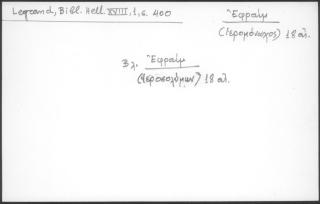 Legrand, Bibl. Hell. XVIII, 1, σ. 400
Ἐφραίμ
(Ἱερομόναχος) 18 αἰ.
Βλ. Ἐφραίμ
(Ἱεροσολύμων) 18 αἰ.